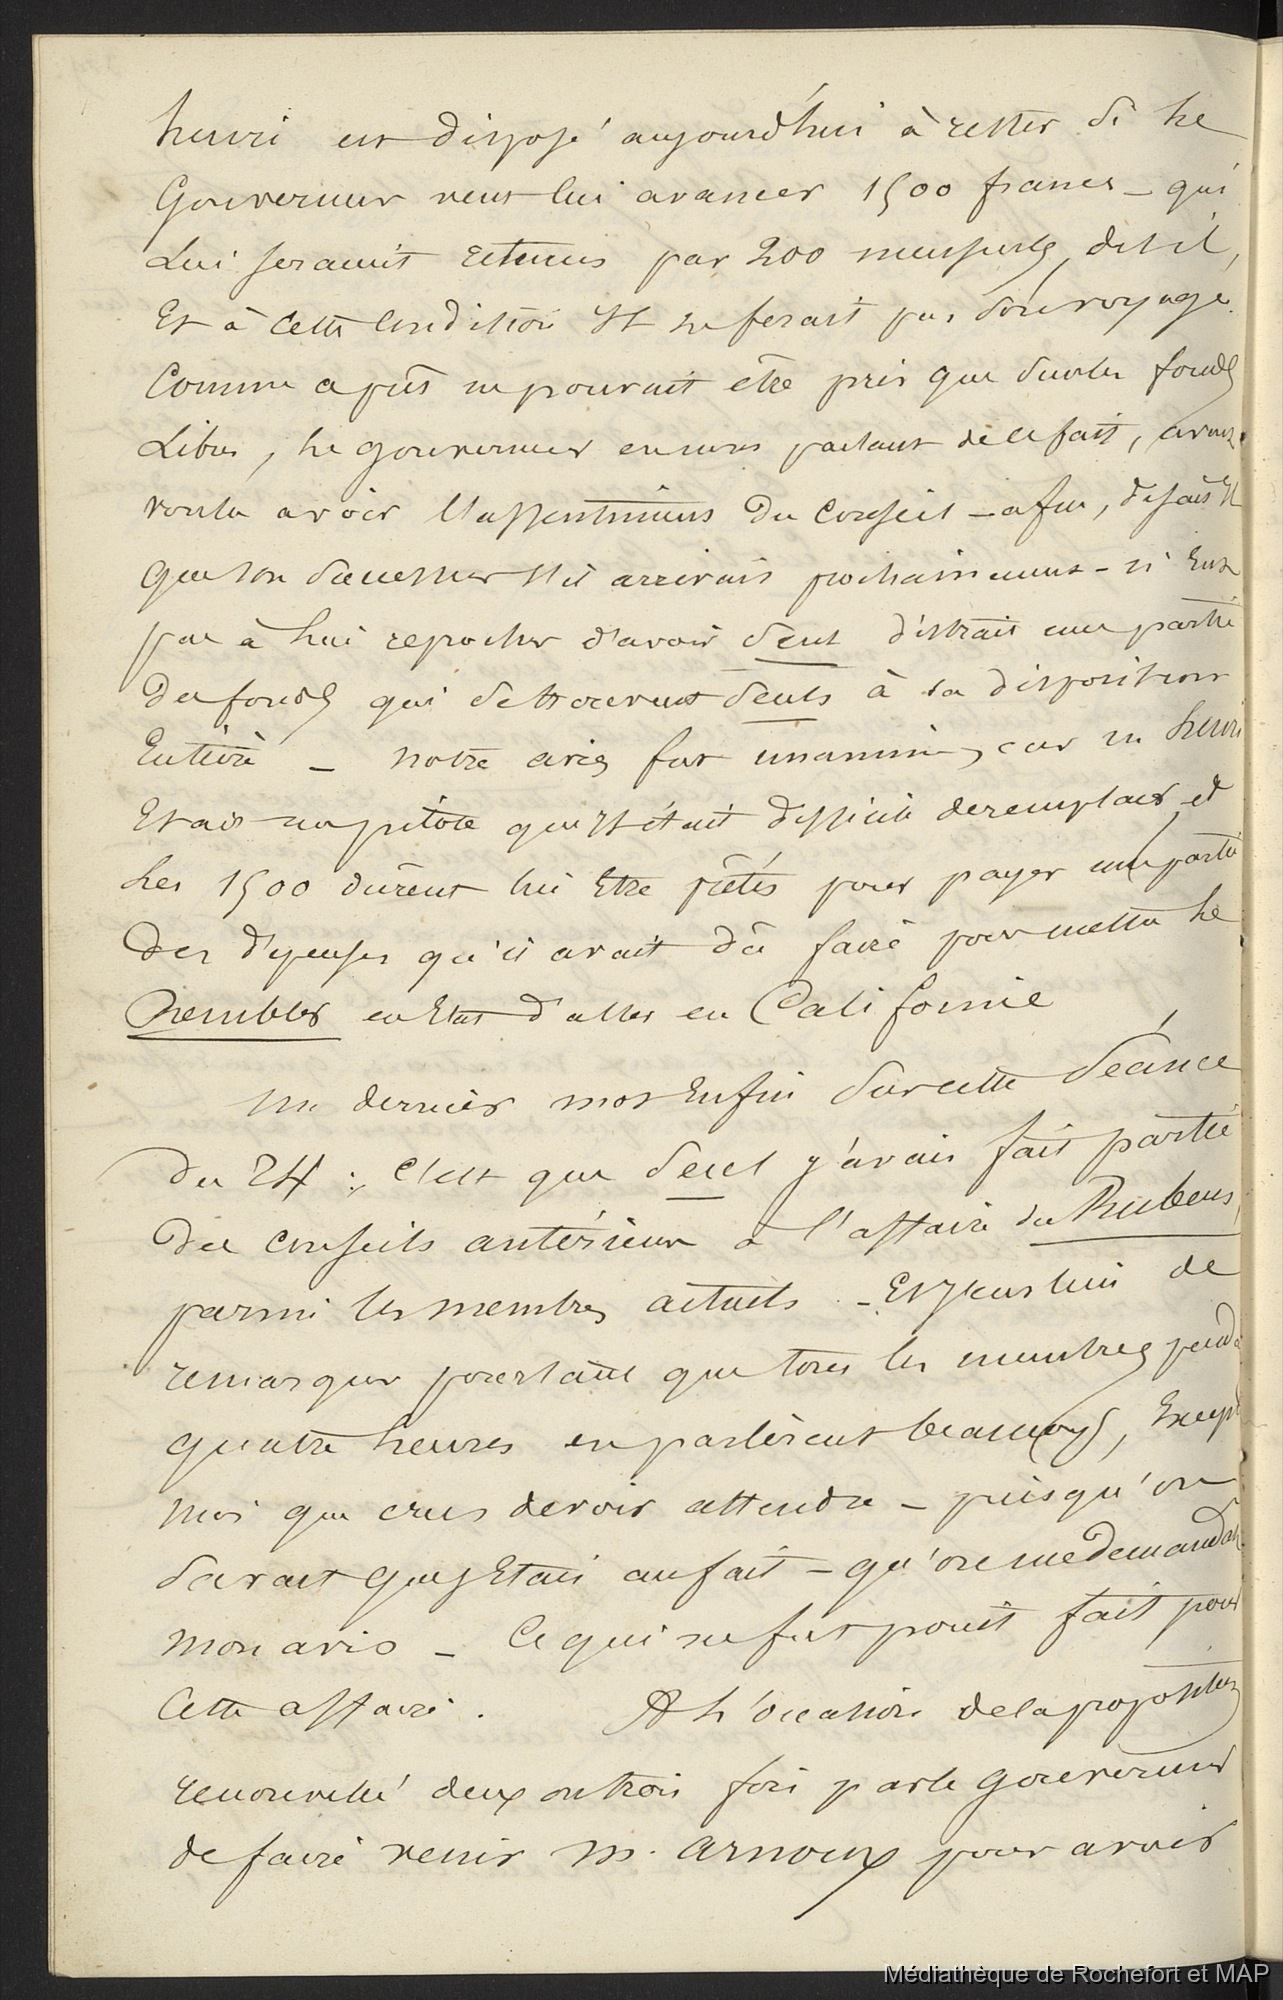 henri est disposé aujourd'hui à rester si le
Gouverneur veut lui avancer 1500 francs - qui
Lui seraient retenus par 200 mensuels, dit il,
Et à cette Condition Il ne ferait pas son voyage.
Comme a prêt ne pouvait etre pris que sur les fonds
Libres, le gouverneur en nous parlant de ce fait, avait
voulu avoir l'assentiment du Conseil - afin, disait Il
que son successeur s'il arrivait prochainement - n'Eut
pas à lui reprocher d'avoir seul distrait une partie
des fonds qui se trouvent seuls à sa disposition
Entière - notre avis fut unanime, car m henri
Etait un pilote qu'Il était difficile de remplacer et
les 1500 durent lui Etre prêtés pour payer une partie
Des dépenses qu'il avait dû faire pour mettre le
en Etat d'aller en Californie
un dernier mot Enfin sur cette Séance
du 24 : C'est que seul j'avais fait partie
des conseils antérieurs à l'affaire du Rubens,
parmi les membres actuels - Et j'eus lieu de
remarquer pourtant que tous les membres pendt
quatre heures en parlèrent beaucoup, Except
moi que crus devoir attendre - puisqu'on
savait que j'Etais au fait - qu'on me demandat
mon avis - Ce qui ne fut point fait pour
Cette affaire. A L'occasion de la proposition
renouvelé deux ou trois fois par le gouverneur
de faire venir M. Arnoux pour avoir
Médiathèque de Rochefort et MAP